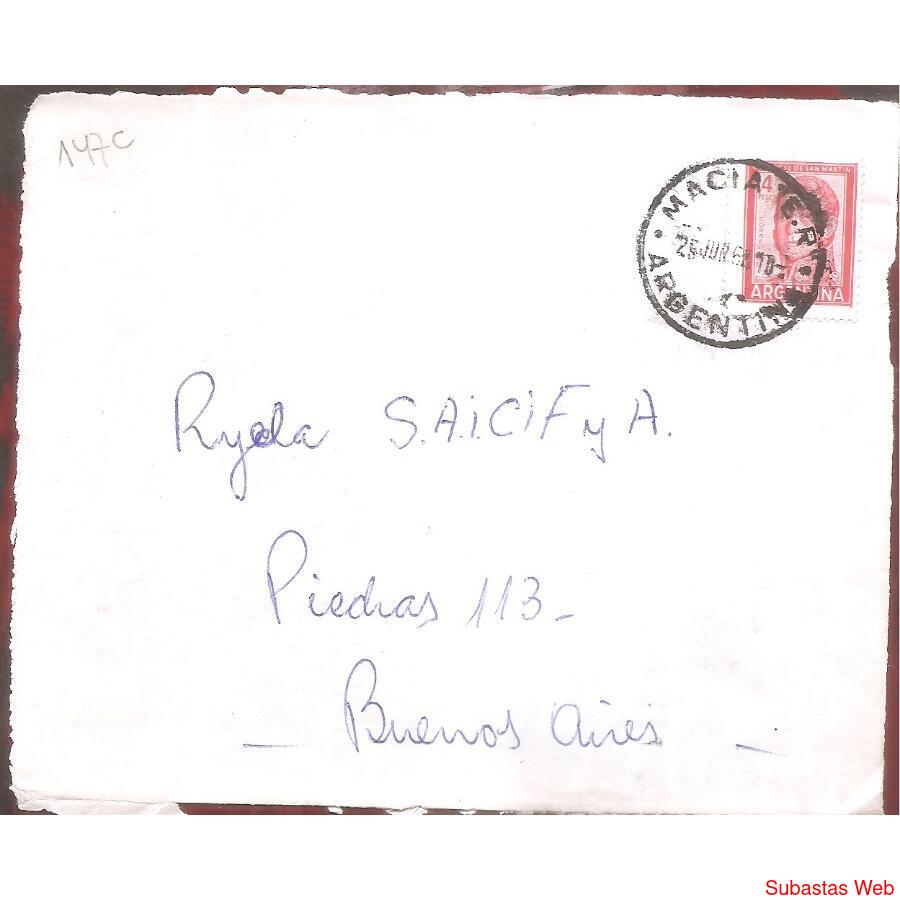 147c
JOSE DE SAN MARTIN
4
PESOS
ARGENTINA
MACIA (E.R.)
25 JUN 10
ARGENTINA
Ryela S.A.i.CiF y A.
Piedras 113-
— Buenos Aires —
Subastas Web